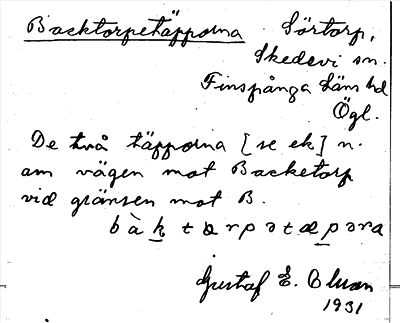 Backtorpetäpporna Sörtorp,
Skedevi sn.
Finspånga läns hd
Ögl.
De två täpporna [se ek] n.
om vägen mot Backetorp
vid gränsen mot B.
bàk tɒrpətæpəra
Gustaf E. Olsson
1931